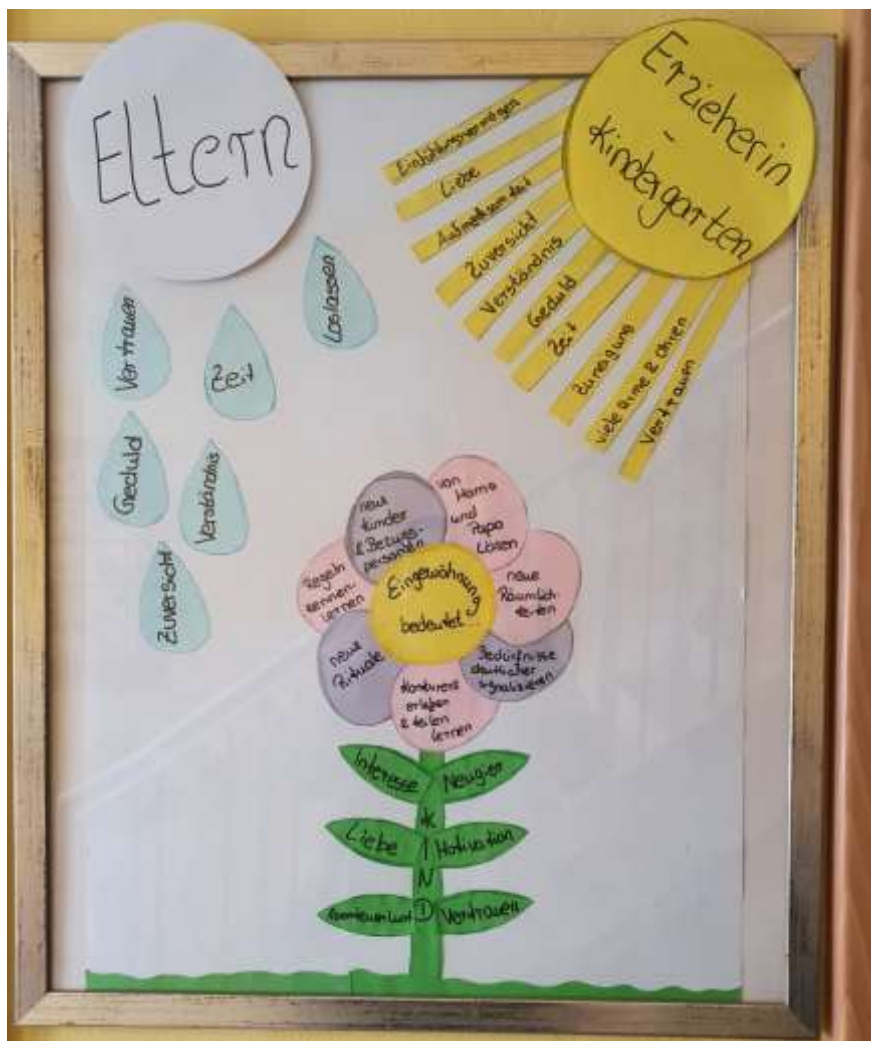 Eltern
Erzieherin
-
Kindergarten
Einfühlungsvermögen
Liebe
Aufmerksamkeit
Zuversicht
Verständnis
Geduld
Zeit
Zuneigung
viele Arme & Ohren
Vertrauen
Loslassen
Vertrauen
Zeit
Geduld
Verständnis
Zuversicht
Eingewöhnung
bedeutet...
neue
Kinder
& Bezugs-
personen
von
Mama
und
Papa
Lösen
neue
Räumlich-
keiten
Bedürfnisse
deutlicher
signalisieren
Konkurenz
erleben
& teilen
lernen
neue
Rituale
Regeln
kennen-
lernen
Interesse
Neugier
Liebe
Motivation
Abenteuerlust
Vertrauen
KIND